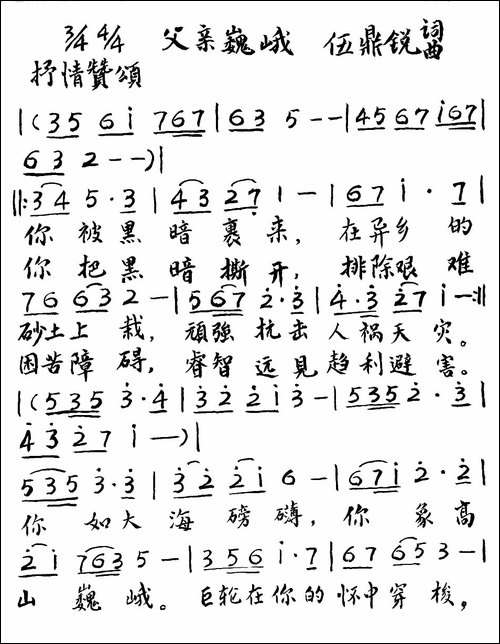 3/4 4/4 父亲巍峨 伍鼎锐 词曲
抒情贊頌
|(3 5 6 i 7 6 7 | 6 3 5 - - | 4 5 6 7 i 6 7 |
6 3 2 - - )|
||: 3 4 5 · 3 | 4 3 2 7̣ 1 - | 6 7 i · 7 |
你 被黑 暗 裹 来, 在异乡 的
你 把黑 暗 撕 开, 排除艰 难
7 6 6 3 2 - | 5 6 7 2̇ · 3̇ | 4̇ · 3̇ 2̇ 7 i - :||
砂土上 栽, 頑強 抗击 人祸天 灾。
困苦障 碍, 睿智 远見 趋利避 害。
|(5 3 5 3̇ · 4̇ | 3̇ 2̇ 2̇ i 3 - | 5 3 5 2̇ · 3̇ |
4̇ 3̇ 2̇ 7 i - )|
5 3 5 3̇ · 3̇ | 3̇ 2̇ 2̇ i 6 - | 6 7 i 2̇ · 2̇ |
你 如大 海 磅 礴, 你 象高
2̇ i 7 6 3 5 - | 3 5 6 i · 7 | 6 7 6 5 3 - |
山 巍 峨。 巨轮在你的 怀中穿 梭,